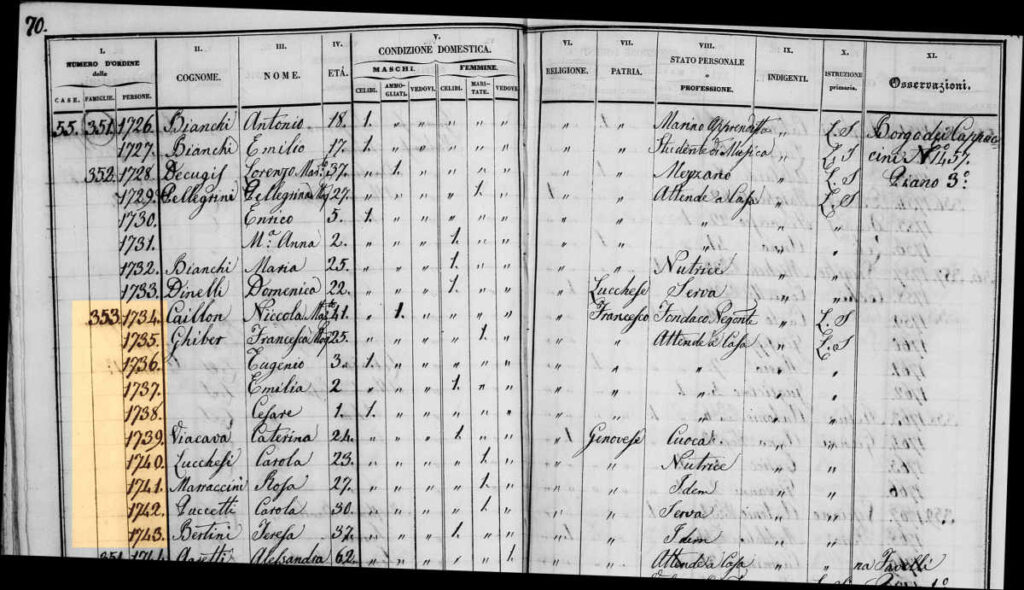 70.
I. II. III. IV. V. VI. VII. VIII. IX. X. XI.
NUMERO D'ORDINE delle COGNOME. NOME. ETÁ. CONDIZIONE DOMESTICA. RELIGIONE. PATRIA. STATO PERSONALE o PROFESSIONE. INDIGENTI. ISTRUZIONE primaria. Osservazioni.
MASCHI. FEMMINE.
CASE. FAMIGLIE. PERSONE. CELIBI. AMMOGLIATI. VEDOVI. CELIBI. MARITATE. VEDOVE
55. 351. 1726. Bianchi Antonio 18. 1. " " " " " " " Marino Apprendista " L. S Borgo dei Cappuc
1727. Bianchi Emilio 17. 1. " " " " " " " Studente di Musica " L. S cini N.° 1457.
352. 1728. Decugif Lorenzo 37. " 1. " " " " " " Mezzano " L. S Piano 3.°
1729. Pellegrini Pellegrina 27. " " " " 1. " " " Attende a Casa " L. S
1730. Enrico 5. 1. " " " " " " " " " "
1731. M.a Anna 2. " " " 1. " " " " " " "
1732. Bianchi Maria 25. " " " 1. " " " " Nutrice " "
1733. Dinelli Domenica 22. " " " 1. " " " Lucchese Serva " "
353. 1734. Caillon Niccola 41. " 1. " " " " " Francesco Fondaco Negonte " L. S
1735. Ghiber Francesca 25. " " " " 1. " " " Attende a Casa " L. S
1736. Eugenio 3. 1. " " " " " " " " " "
1737. Emilia 2 " " " 1. " " " " " " "
1738. Cesare 1. 1. " " " " " " " " " "
1739. Viacava Caterina 24. " " " 1. " " " Genovese Cuoca " "
1740. Lucchesi Carola 23. " " " " 1. " " " Nutrice " "
1741. Marraccini Rosa 27. " " " " 1. " " " Idem " "
1742. Puccetti Carola 30. " " " " 1. " " " Serva " "
1743. Bertini Teresa 37. " " " 1. " " " " Idem " "
354 1744. Alessandra 62. " " " " " 1 " " Attende a Casa " " na Tavelli